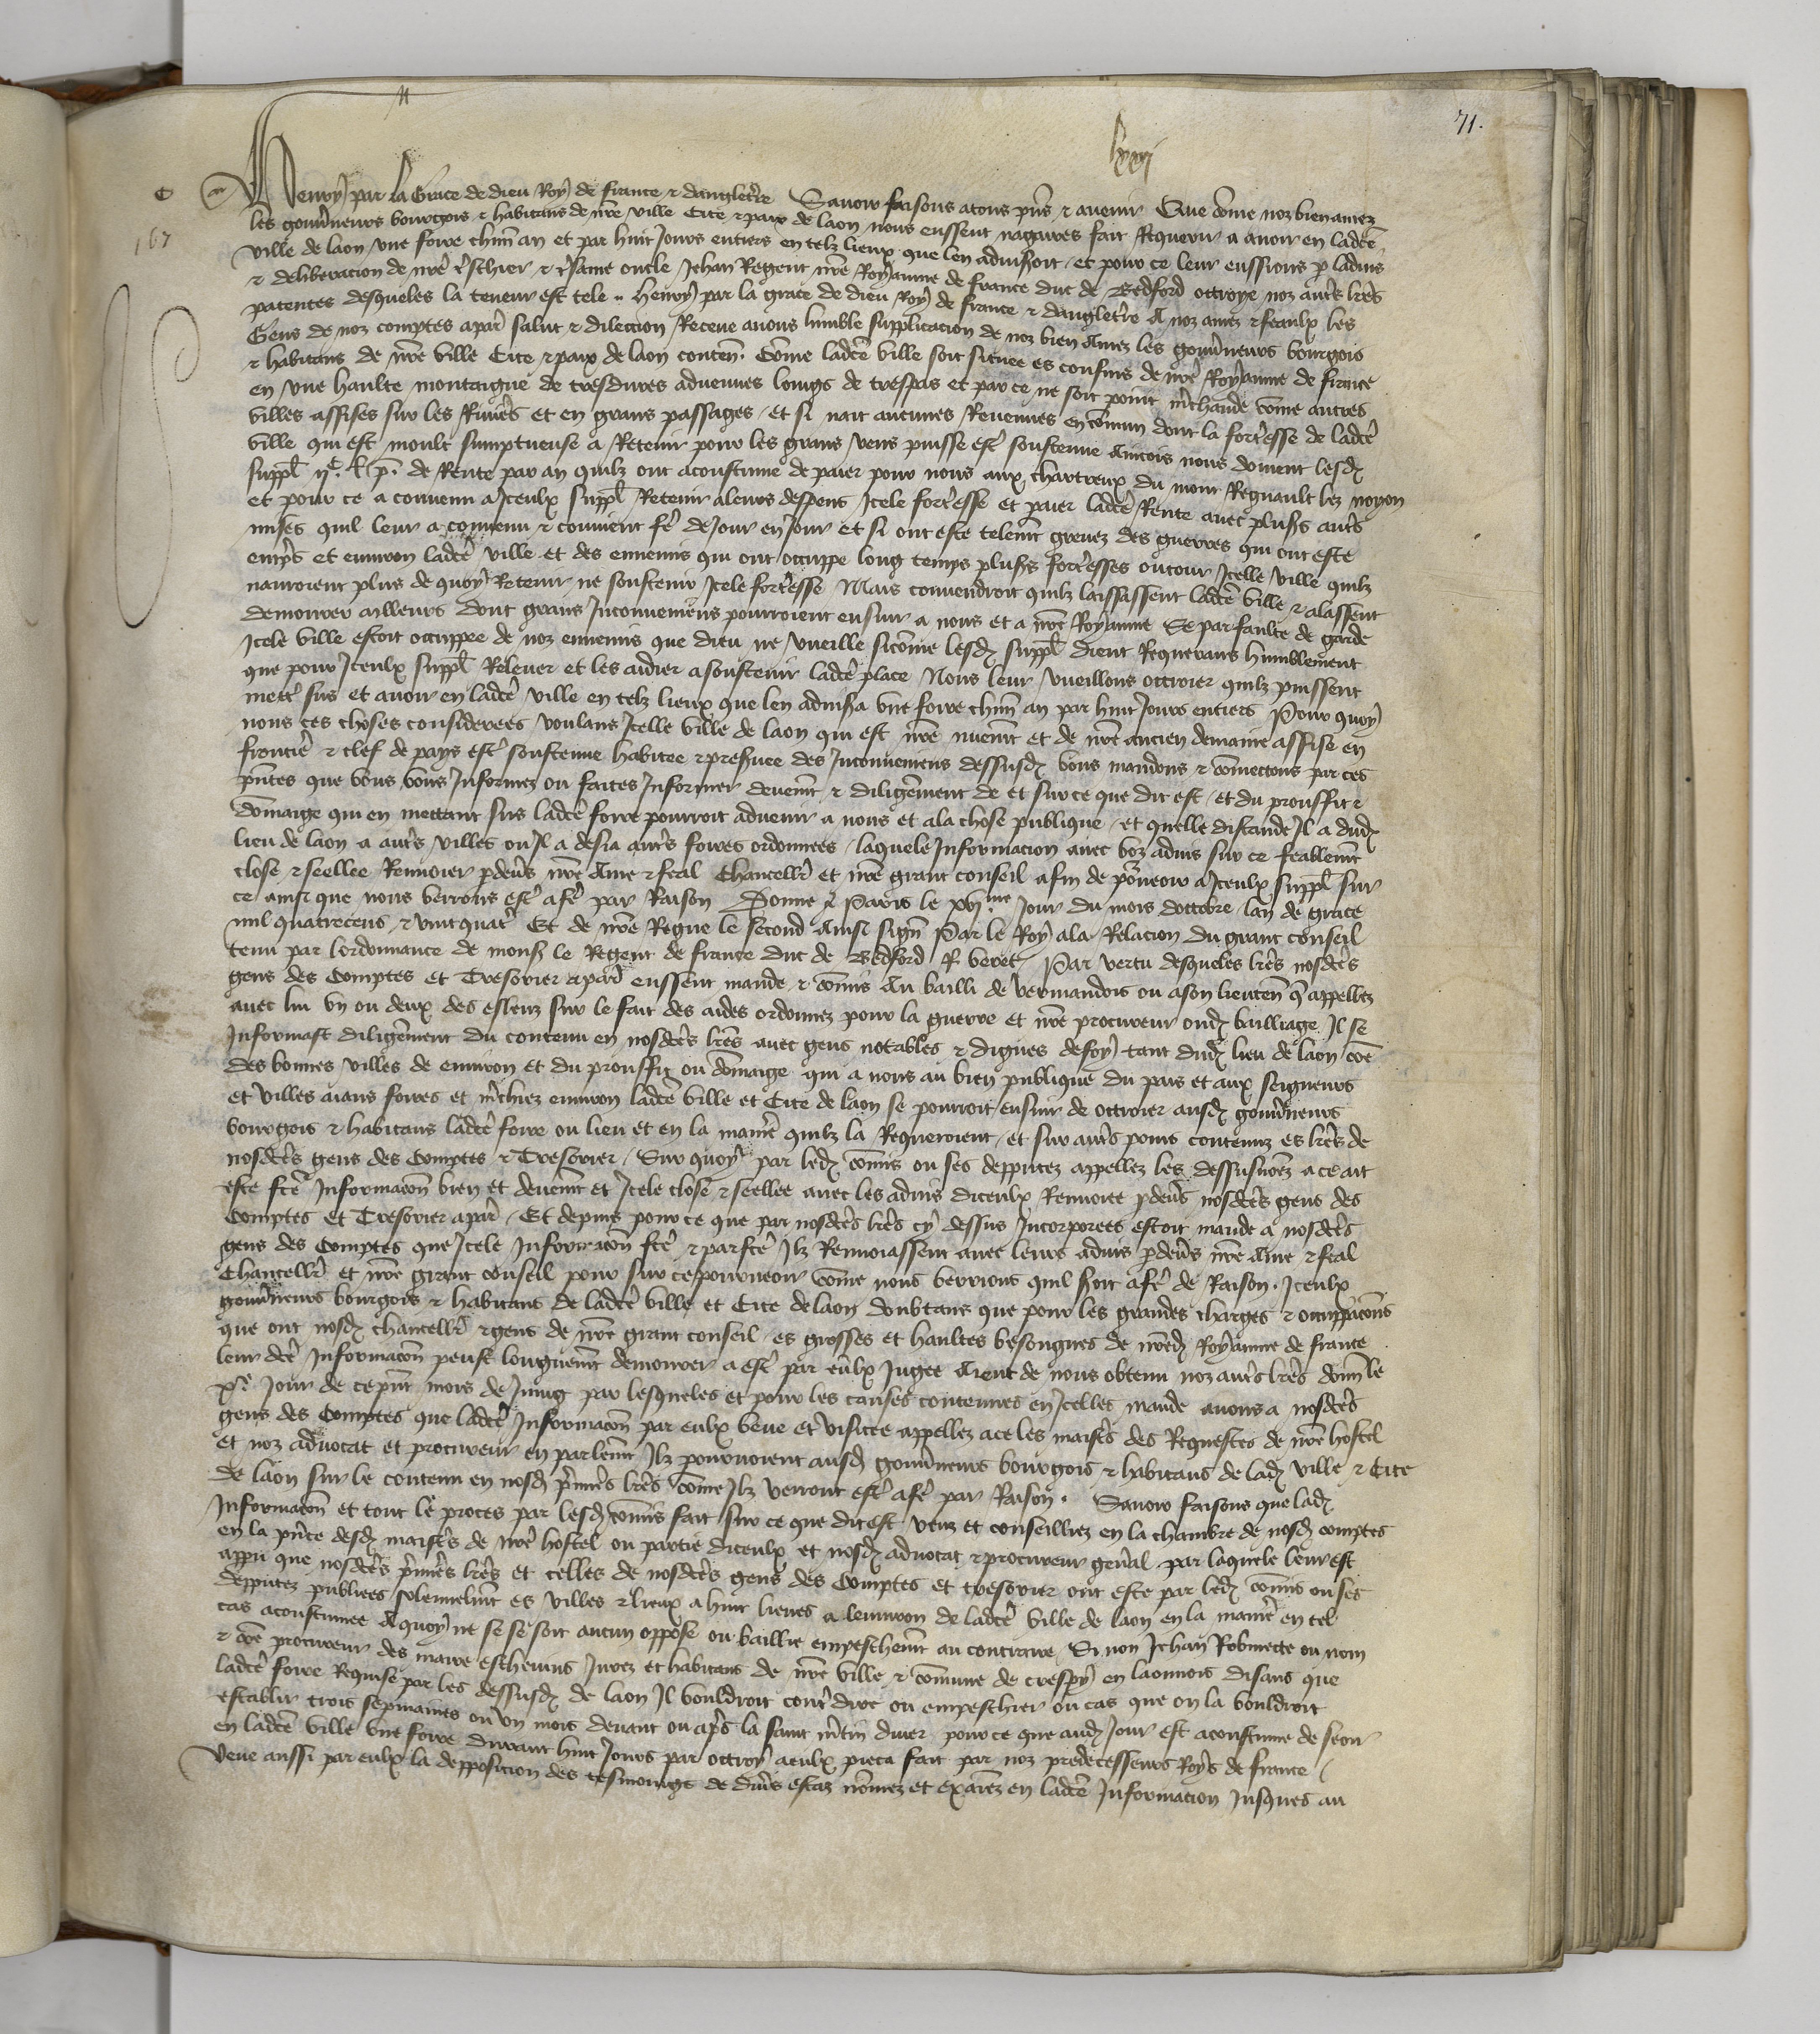 71.
lxxj
Henry par la Grace de dieu Roy de france & dangletr̄e Sauoir faisons atous pn̄s & auenir Que cōme noz bien amez
167
les gouūneurs bourgois & habitans de nr̄e ville Cite & paix de laon nous eussent nagaires fait Requerir a auoir en ladcē
ville de laon vne foire chūn an et par huit Jours entiers en telz lieux que len aduiseroit et pour ce leur eussions p ladius
& deliberacion de nr̄e tr̄schier & tr̄samé oncle Jehan Regent nr̄e Royaume de france duc de Bedford ottroye noz autr̄s lr̄es
patentes desqueles la teneur est tele .. henry par la grace de dieu Roy de france & dangletr̄e A noz amez & feaulx les
Gens de noz comptes apar̄ salut & dilection Receue auons humble supplicacion de noz bien Amez les gouūneurs bourgois
& habitans de nr̄e ville Cite & paix de laon conten̄. Cōme ladcē ville soit situee es confins de nr̄e Royaume de france
en vne haulte montaigne de tresdures aduenues loings de trespas et par ce ne soit point m̄chande cōme autres
villes assises sur les Riuieŕs et en grans passages et si nait aucunes Reuenues en cōmun dont la fortr̄esse de ladcē
ville qui est moult sumptueuse a Retenir pour les grans vens puisse estr̄ soustenue Aincois nous doiuent lesd
suppl̄ ijᶜ. l. p̄. de Rente par an quilz ont acoustume de paier pour nous aux chartreux du mont Regnault lez noyon
et pour ce a conuenu a Jceulx suppl̄ Retenir aleurs despens Jcele fortr̄esse et paier ladcē Rente auec plus̄s autr̄s
mises quil leur a conuenu & conuient fē de Jour en Jour et si ont este telem̄t greuez des guerres qui ont este
enuīs et enuiron ladcē ville et des ennemis qui ont occuppe long temps plus̄s fortr̄esses entour Jcelle ville quilz
nauroient plus de quoy Retenir ne soustenir Jcele fortr̄esse Mais conuendroit quilz laissassent ladcē ville & alassent
demourer ailleurs dont grans Jnconueniens pourroient ensuir a nous et a nr̄e Royaume Se par faulte de garde
Jcele ville estoit occuppee de noz ennemis que dieu ne vueille sicōme lesd suppl̄ dient Requerans humblement
que pour Jceulx suppl̄ Releuer et les aidier a soustenir ladcē place Nous leur vueillons ottroier quilz puissent
mettr̄ sus et auoir en ladcē ville en telz lieux que len aduisera vne foire chūn an par huit Jours entiers Pour quoy
nous ces choses considerees voulans Jcelle ville de laon qui est nr̄e nuem̄t et de nr̄e ancien demaine assise en
frontiē & clef de pays estr̄ soustenue habitee & preseruee des Jnconueniens dessusd vous mandons & cōmectons par ces
pn̄tes que vous vous Jnformez ou faites Jnformer deuem̄t & diligēment de et sur ce que dit est et du prouffit &
dōmaige qui en mettant sus ladcē foire pourroit aduenir a nous et ala chose publique et quelle distance Jl a dud
lieu de laon a autr̄s villes ou Jl a desia autr̄s foires ordonnees laquele Jnformacion auec voz aduis sur ce feablem̄t
close & seellee Renuoiez p deūs nr̄e Ame & feal Chancellr̄ et nr̄e grant conseil afin de pōueoir a Jceulx suppl̄ sur
ce ainsi que nous verrons estr̄ afē par Raison Donne a Paris le xvj.me Jour du mois doctobre lan de grace
mil quatrecens & vint quatr̄ Et de nr̄e Regne le second Ainsi sign̄ Par le Roy ala Relacion du grant conseil
tenu par lordonnance de mons̄ le Regent de france duc de Bedford R veret Par vertu desqueles lr̄es nosdcēs
gens des Comptes et Tresorier apar̄ eussent mande & cōmis Au bailli de vermandois ou ason lieuten̄ q̄ appellez
auec lui vn ou deux des esleuz sur le fait des aides ordonnez pour la guerre et nr̄e procureur oud bailliage Jl se
Jnformast diligēment du contenu en nosdcēs lr̄es auec gens notables & dignes de foy tant dud lieu de laon cōe
des bonnes villes de enuiron et du prouffit ou dōmaige qui a nous au bien publique du pais et aux seigneurs
et villes aians foires et m̄chiez enuiron ladcē ville et Cite de laon se pourroit ensuir de ottroier ausd gouūneurs
bourgois & habitans ladcē foire ou lieu et en la manīe quilz la Requeroient et sur autr̄s poins contenuz es lr̄es de
nosdcēs gens des Comptes & Tresorier Sur quoy par led cōmis ou ses depputez appellez les dessusnōmez a ce ait
este fcē Jnformacōn bien et deuem̄t et Jcele close & seellee auec les aduis diceulx Renuoiee p deūs nosdcēs gens des
Comptes et Tresorier apar̄ Et depuis pour ce que par nosdcēs lr̄es cy dessus Jncorporees estoit mande a nosdcēs
gens des Comptes que Jcele Jnformacōn fcē & parfcē Jlz Renuoiassent auec leurs aduis p deūs nr̄e Ame & feal
Chancellr̄ et nr̄e grant conseil pour sur ce pourueoir cōme nous verrions quil seroit afē de Raison . Jceulx
gouūneurs bourgois & habitans de ladcē ville et Cite de laon doubtans que pour les grandes charges & occuppacōns
que ont nosd chancellr̄ & gens de nr̄e grant conseil es grosses et haultes besongnes de nr̄ed Royaume de france
leur dcē Jnformacōn peust longuem̄t demourer a estr̄ par eulx Jugee Aient de nous obtenu noz autr̄s lr̄es donn̄ le
xe Jour de ce pn̄t mois de Juing par lesqueles et pour les causes contenues en Jcelles mande auons a nosdcēs
gens des Comptes que ladcē Jnformacōn par eulx veue et visitee appellez ace les maistr̄s des Requestes de nr̄e hostel
et noz aduocat et procureur en parlem̄t Jlz pouruoient ausd gouūneurs bourgois & habitans de lad ville & Cite
de laon sur le contenu en nosd p̄mieŕs lr̄es cōme Jlz verront estr̄ afē par Raison . Sauoir faisons que lad
Jnformacōn et tout le proces par lesd cōmis fait sur ce que dit est veuz et conseilliez en la chambre de nosd comptes
en la pn̄ce desd maistr̄s de nr̄e hostel ou partie diceulx et nosd aduocat & procureur gen̄al par laquele leur est
apparu que nosdcēs p̄mieŕs lr̄es et celles de nosdcēs gens des Comptes et tresorier ont este par led cōmis ou ses
depputez publiees solennelm̄t es villes & lieux a huit lieues a lenuiron de ladcē ville de laon en la manīe en tel
cas acoustumee A quoy ne se se soit aucun oppose ou baillie empeschem̄t au contraire Si non Jehan Robinette ou nom
& cōe procureur des maire escheuins Jurez et habitans de nr̄e ville & cōmune de crespy en laonnois disans que
ladcē foire Requise par les dessusd de laon Jl vouldroit contr̄dire ou empeschier ou cas que on la vouldroit
establir trois sepmaines ou vn mois deuant ou apr̄s la saint m̄tin diuer pour ce que aud Jour est acoustume de seoir
en ladcē ville vne foire durant huit Jours par ottroy aeulx pieca fait par noz predecesseurs Roys de france
Veue aussi par eulx la depposicion des tesmoings de diūs estaz nōmez et examīez en ladcē Jnformacion Jusques au